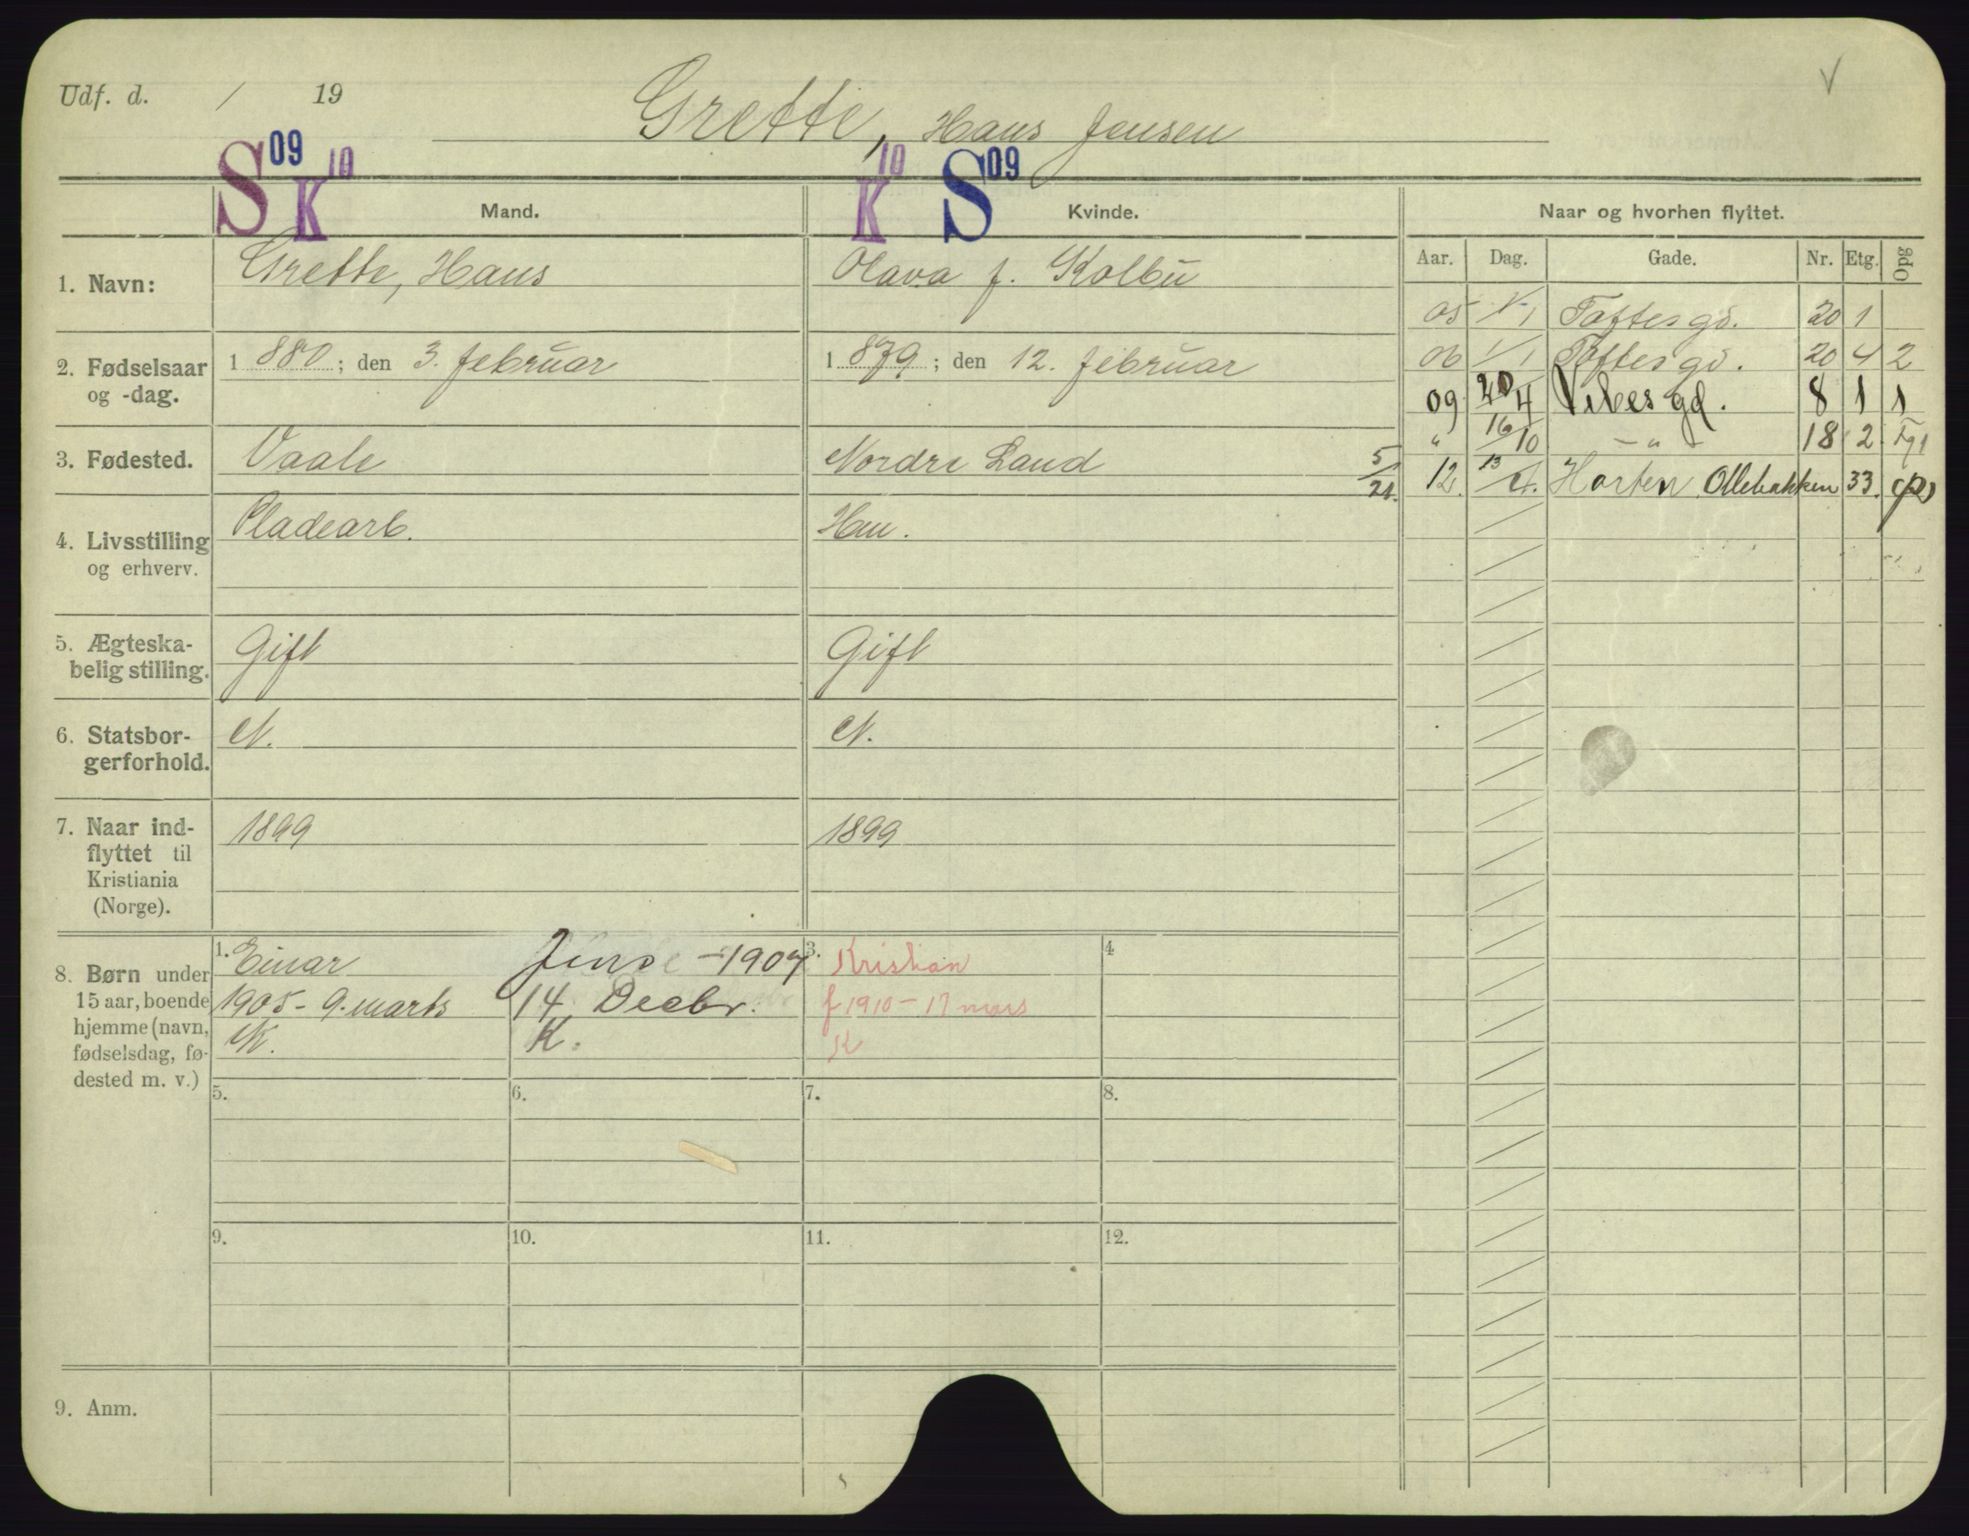 Udf. d. / 19
Grette, Hans Jensen
V
S 09 K 10
K 10 S 09
Mand.
Kvinde.
Naar og hvorhen flyttet.
Aar. Dag. Gade. Nr. Etg. Opg
1. Navn:
Grette, Hans
Olava f. Kolbu
2. Fødselsaar
og -dag.
1 880; den 3. februar
1 879; den 12. februar
3. Fødested.
Vaale
Nordre Land
5/21.
4. Livsstilling
og erhverv.
Pladearb.
Hm.
5. Ægteska-
belig stilling.
Gift
Gift
6. Statsbor-
gerforhold.
N.
N.
7. Naar ind-
flyttet til
Kristiania
(Norge).
1899
1899
05 1/1 Toftes gd. 20 1
06 1/1 Toftes gd. 20 4 2
09 20/4 Vibes gd. 8 1 1
" 16/10 – " – 18 2
12. 13/4. Horten Ollebakken 33.
8. Børn under
15 aar, boende
hjemme (navn,
fødselsdag, fø-
dested m. v.)
1. Einar
1905 - 9. marts
K.
Jens - 1907
14. Decbr.
K.
3. Kristian
f 1910 – 17 mars
K
4
5.
6.
7.
8.
9.
10.
11.
12.
9. Anm.